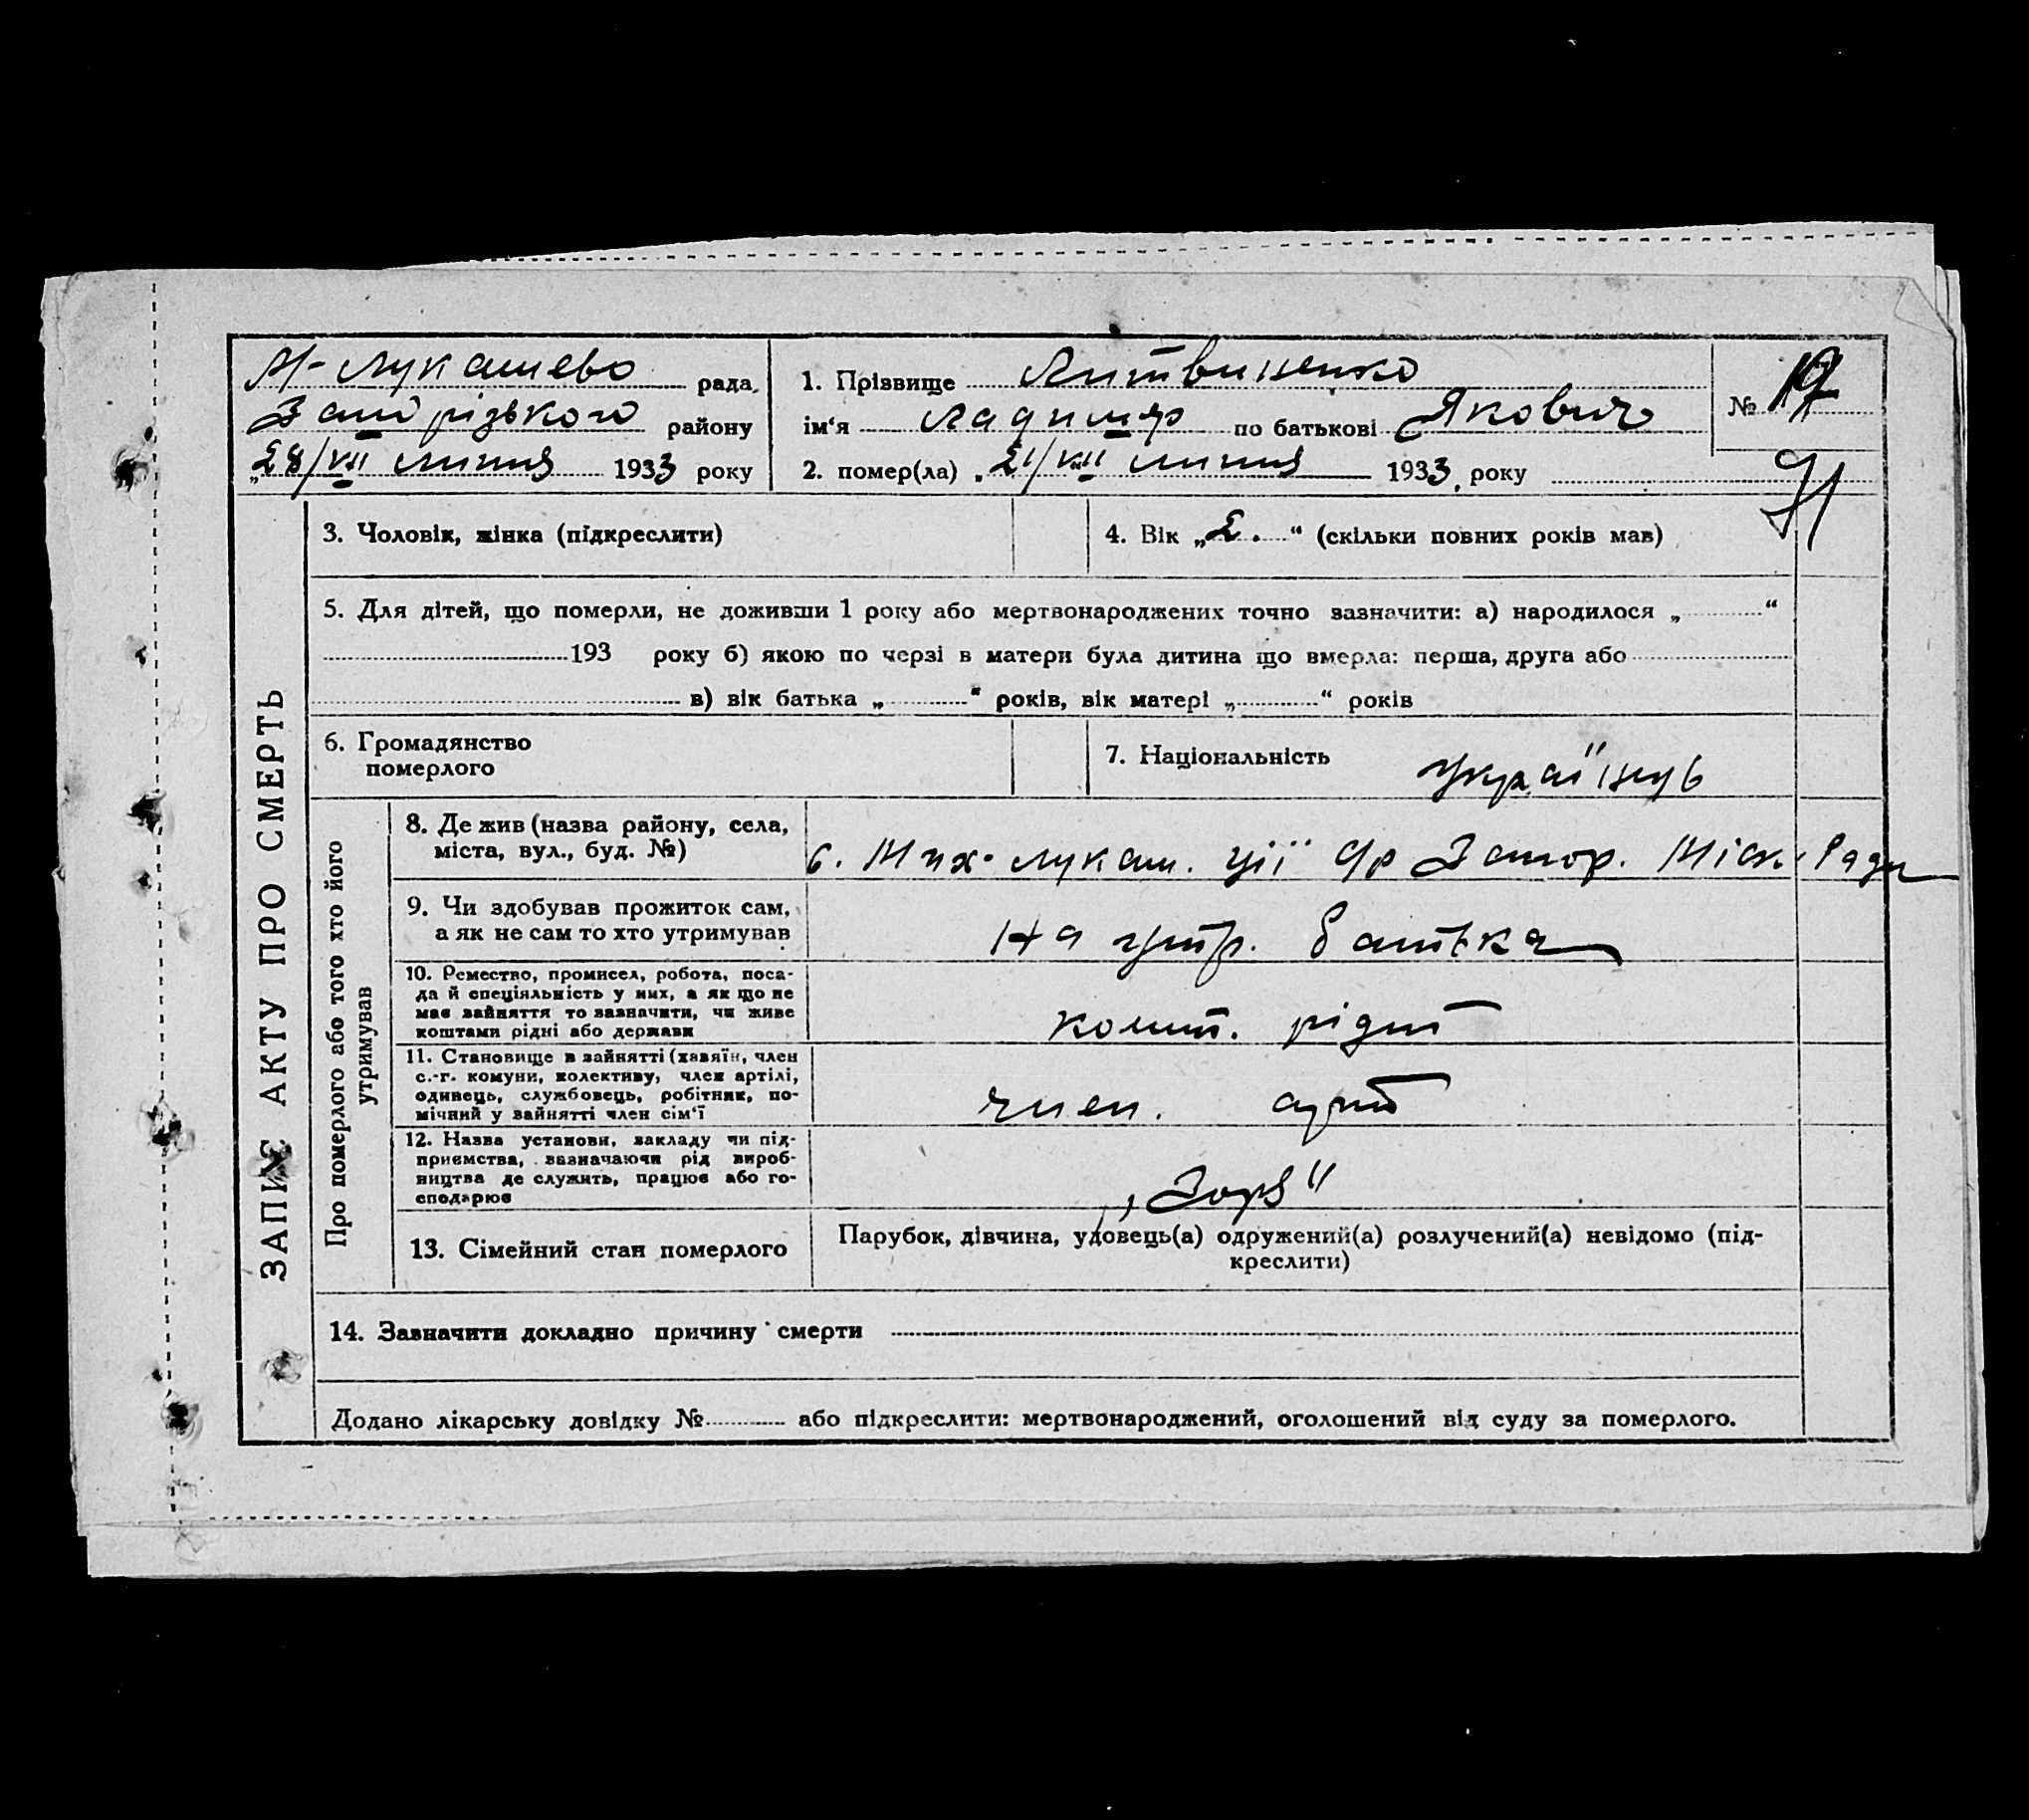 М-Лукашево рада,
Запорізького району
„28/VII липня 1933 року
1. Прізвище Литвиненко
ім‘я Ладимир по батькові Якович
2. помер(ла) „21/VII липня 1933 року
№ 17
91
ЗАПИС АКТУ ПРО СМЕРТЬ
3. Чоловік, жінка (підкреслити)
4. Вік „2.“ (скільки повних років мав)
5. Для дітей, що померли, не доживши 1 року або мертвонароджених точно зазначити: а) народилося „ “
193 року б) якою по черзі в матери була дитина що вмерла: перша, друга або
в) вік батька „ “ років, вік матері „ “ років
6. Громадянство
померлого
7. Національність україець
Про померлого або того хто його
утримував
8. Де жив (назва району, села,
міста, вул., буд. №)
с. Мих-Лукаш. Запор. Міськ Ради
9. Чи здобував прожиток сам,
а як не сам то хто утримував
На утр. батька
10. Ремество, промисел, робота, поса-
да й спеціяльність у них, а як що не
має зайняття то зазначити, чи живе
коштами рідні або держави
кошт. рідні
11. Становище в зайнятті (хазяїн, член
с.-г. комуни, колективу, член артілі,
одинець, службовець, робітник, по-
мічний у зайнятті член сім‘ї
член. арті
12. Назва установи, закладу чи під-
приємства, зазначаючи рід вироб-
ництва де служить, працює або го-
сподарює
„Зоря“
13. Сімейний стан померлого
Парубок, дівчина, удовець(а) одружений(а) розлучений(а) невідомо (під-
креслити)
14. Зазначити докладно причину смерти
Додано лікарську довідку № або підкреслити: мертвонароджений, оголошений від суду за померлого.